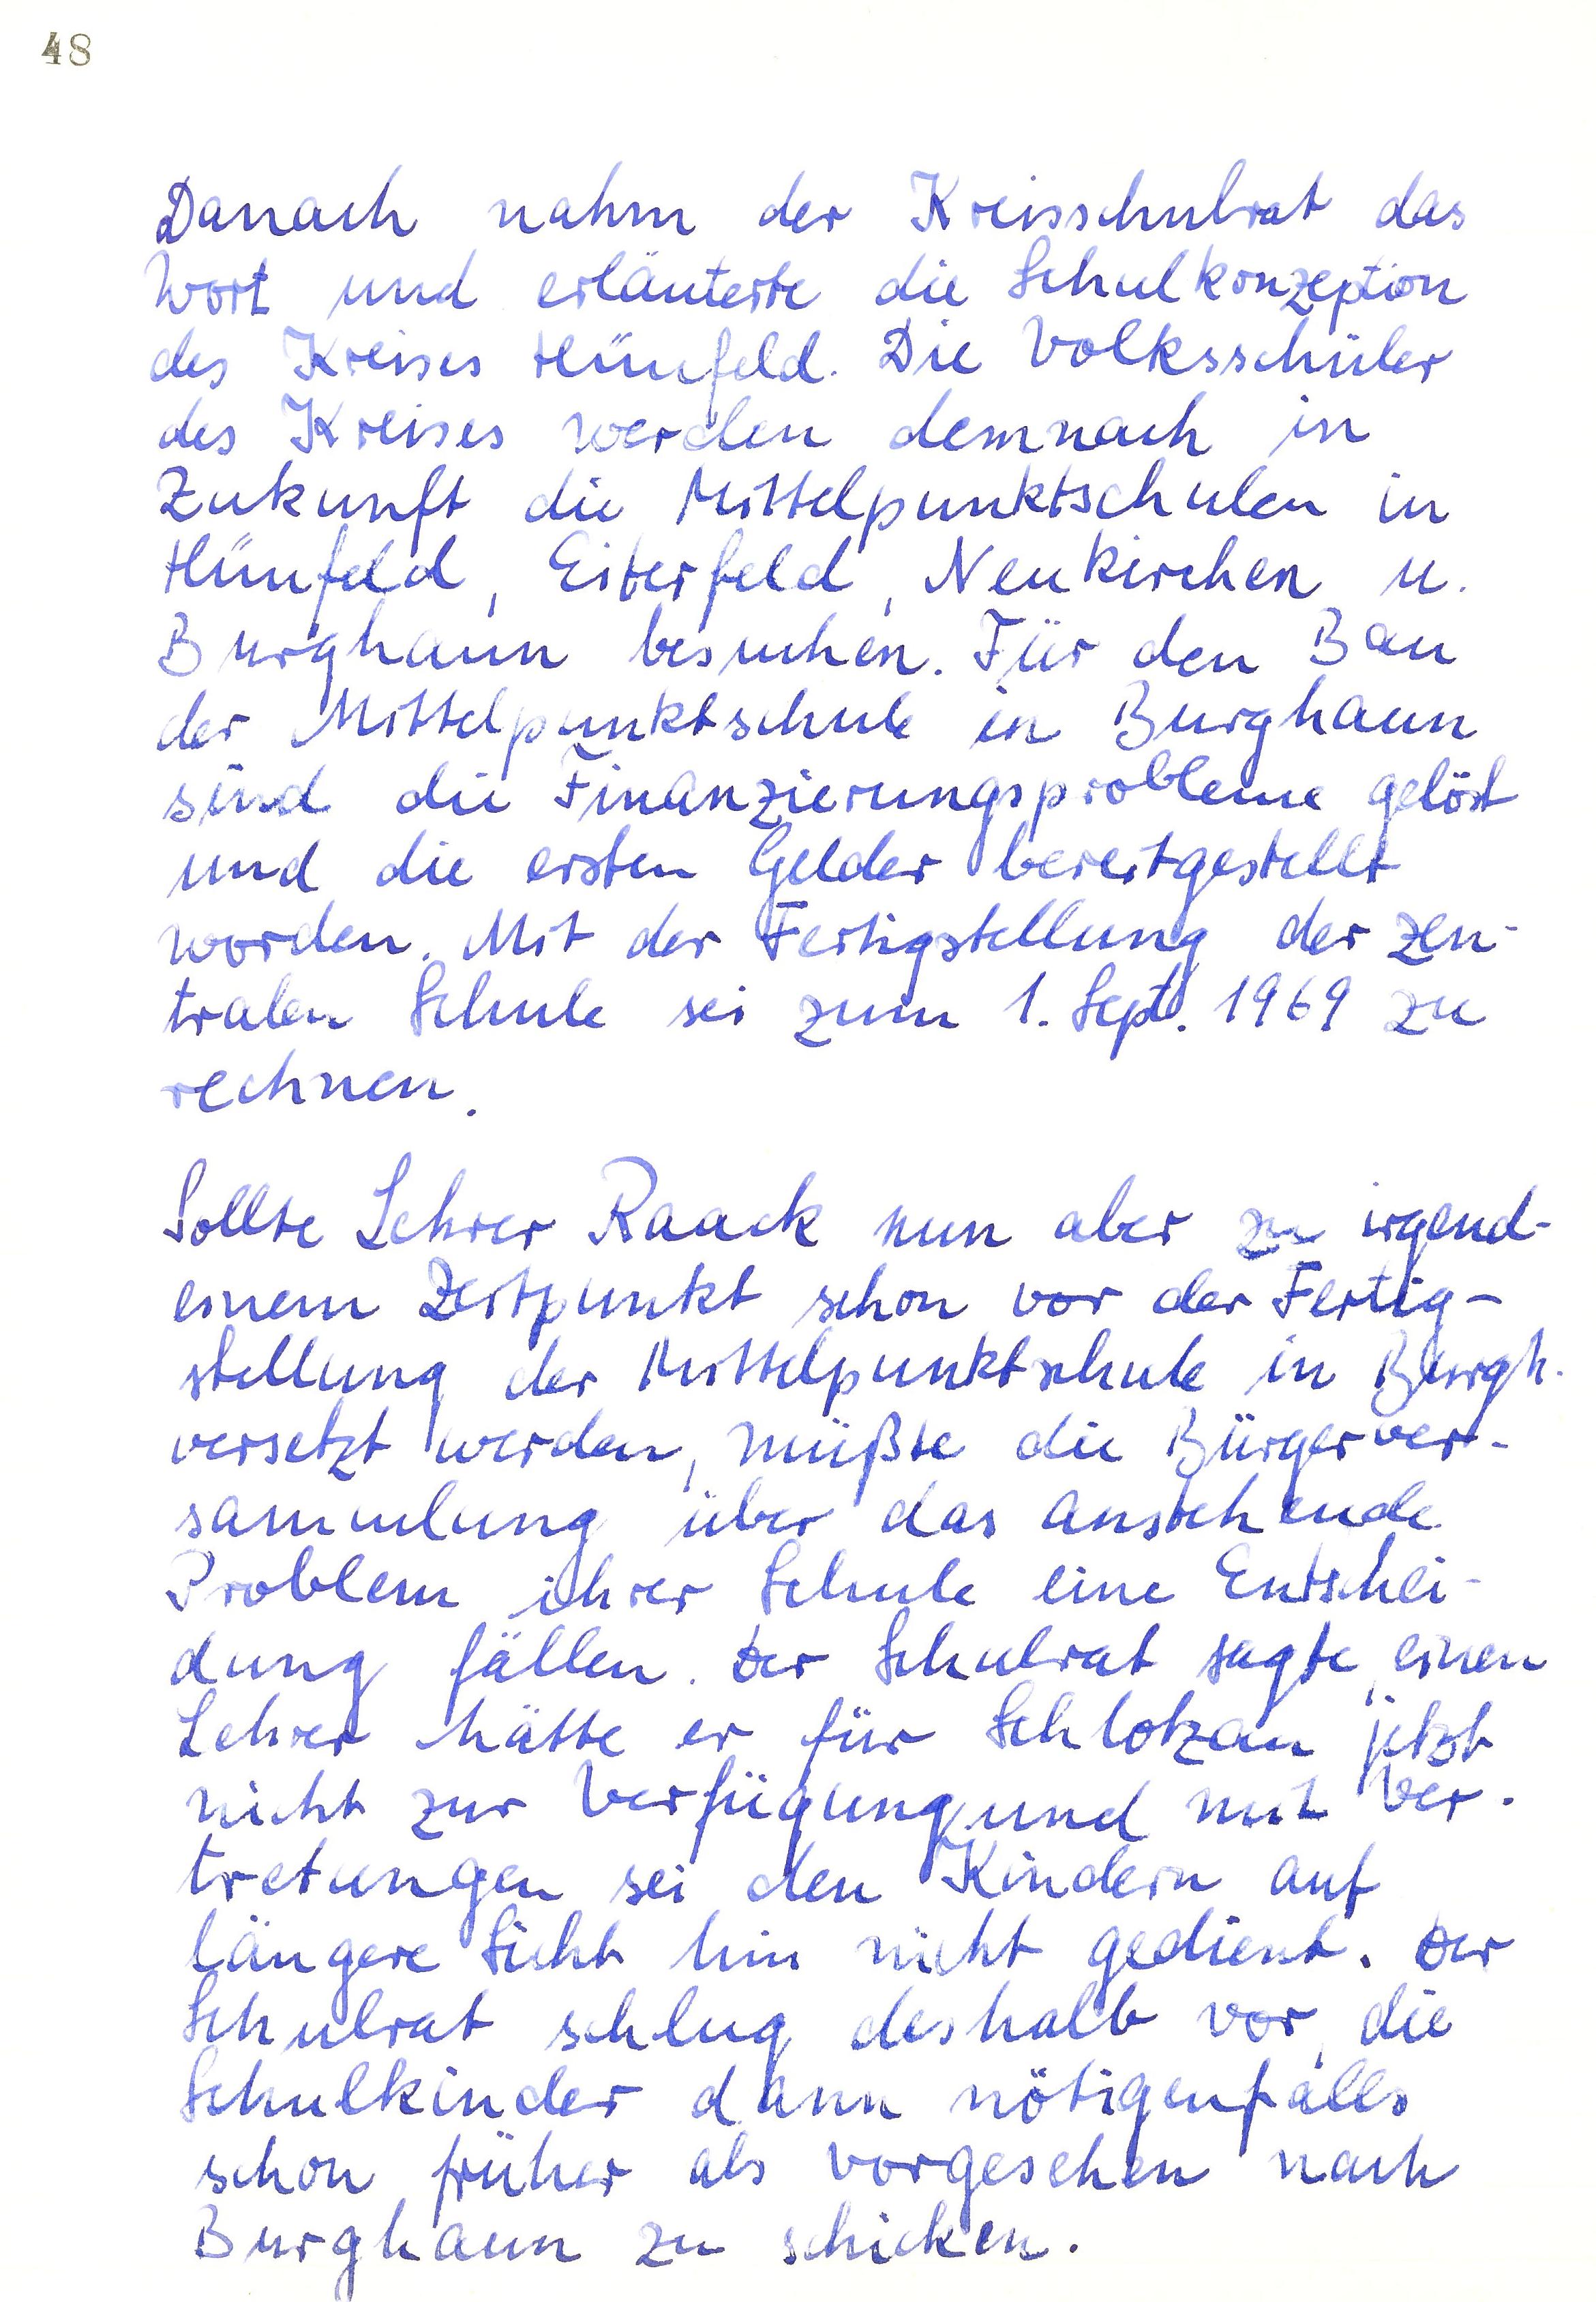 48
Danach nahm der Kreisschulrat das
Wort und erläuterte die Schulkonzeption
des Kreises Hünfeld. Die Volksschüler
des Kreises werden demnach in
Zukunft die Mittelpunktschulen in
Hünfeld, Eiterfeld, Neukirchen u.
Burghaun besuchen. Für den Bau
der Mittelpunktschule in Burghaun
sind die Finanzierungsprobleme gelöst
und die ersten Gelder bereitgestellt
worden. Mit der Fertigstellung der zen-
tralen Schule sei zum 1. Sept. 1969 zu
rechnen.
Sollte Lehrer Raack nun aber zu irgend-
einem Zeitpunkt schon vor der Fertig-
stellung der Mittelpunktschule in Burgh.
versetzt werden, müßte die Bürgerver-
sammlung über das anstehende
Problem ihrer Schule eine Entschei-
dung fällen. Der Schulrat sagte, einen
Lehrer hätte er für Schlotzau jetzt
nicht zur Verfügung und mit Ver-
tretungen sei den Kindern auf
längere Sicht hin nicht gedient. Der
Schulrat schlug deshalb vor, die
Schulkinder dann nötigenfalls
schon früher als vorgesehen nach
Burghaun zu schicken.